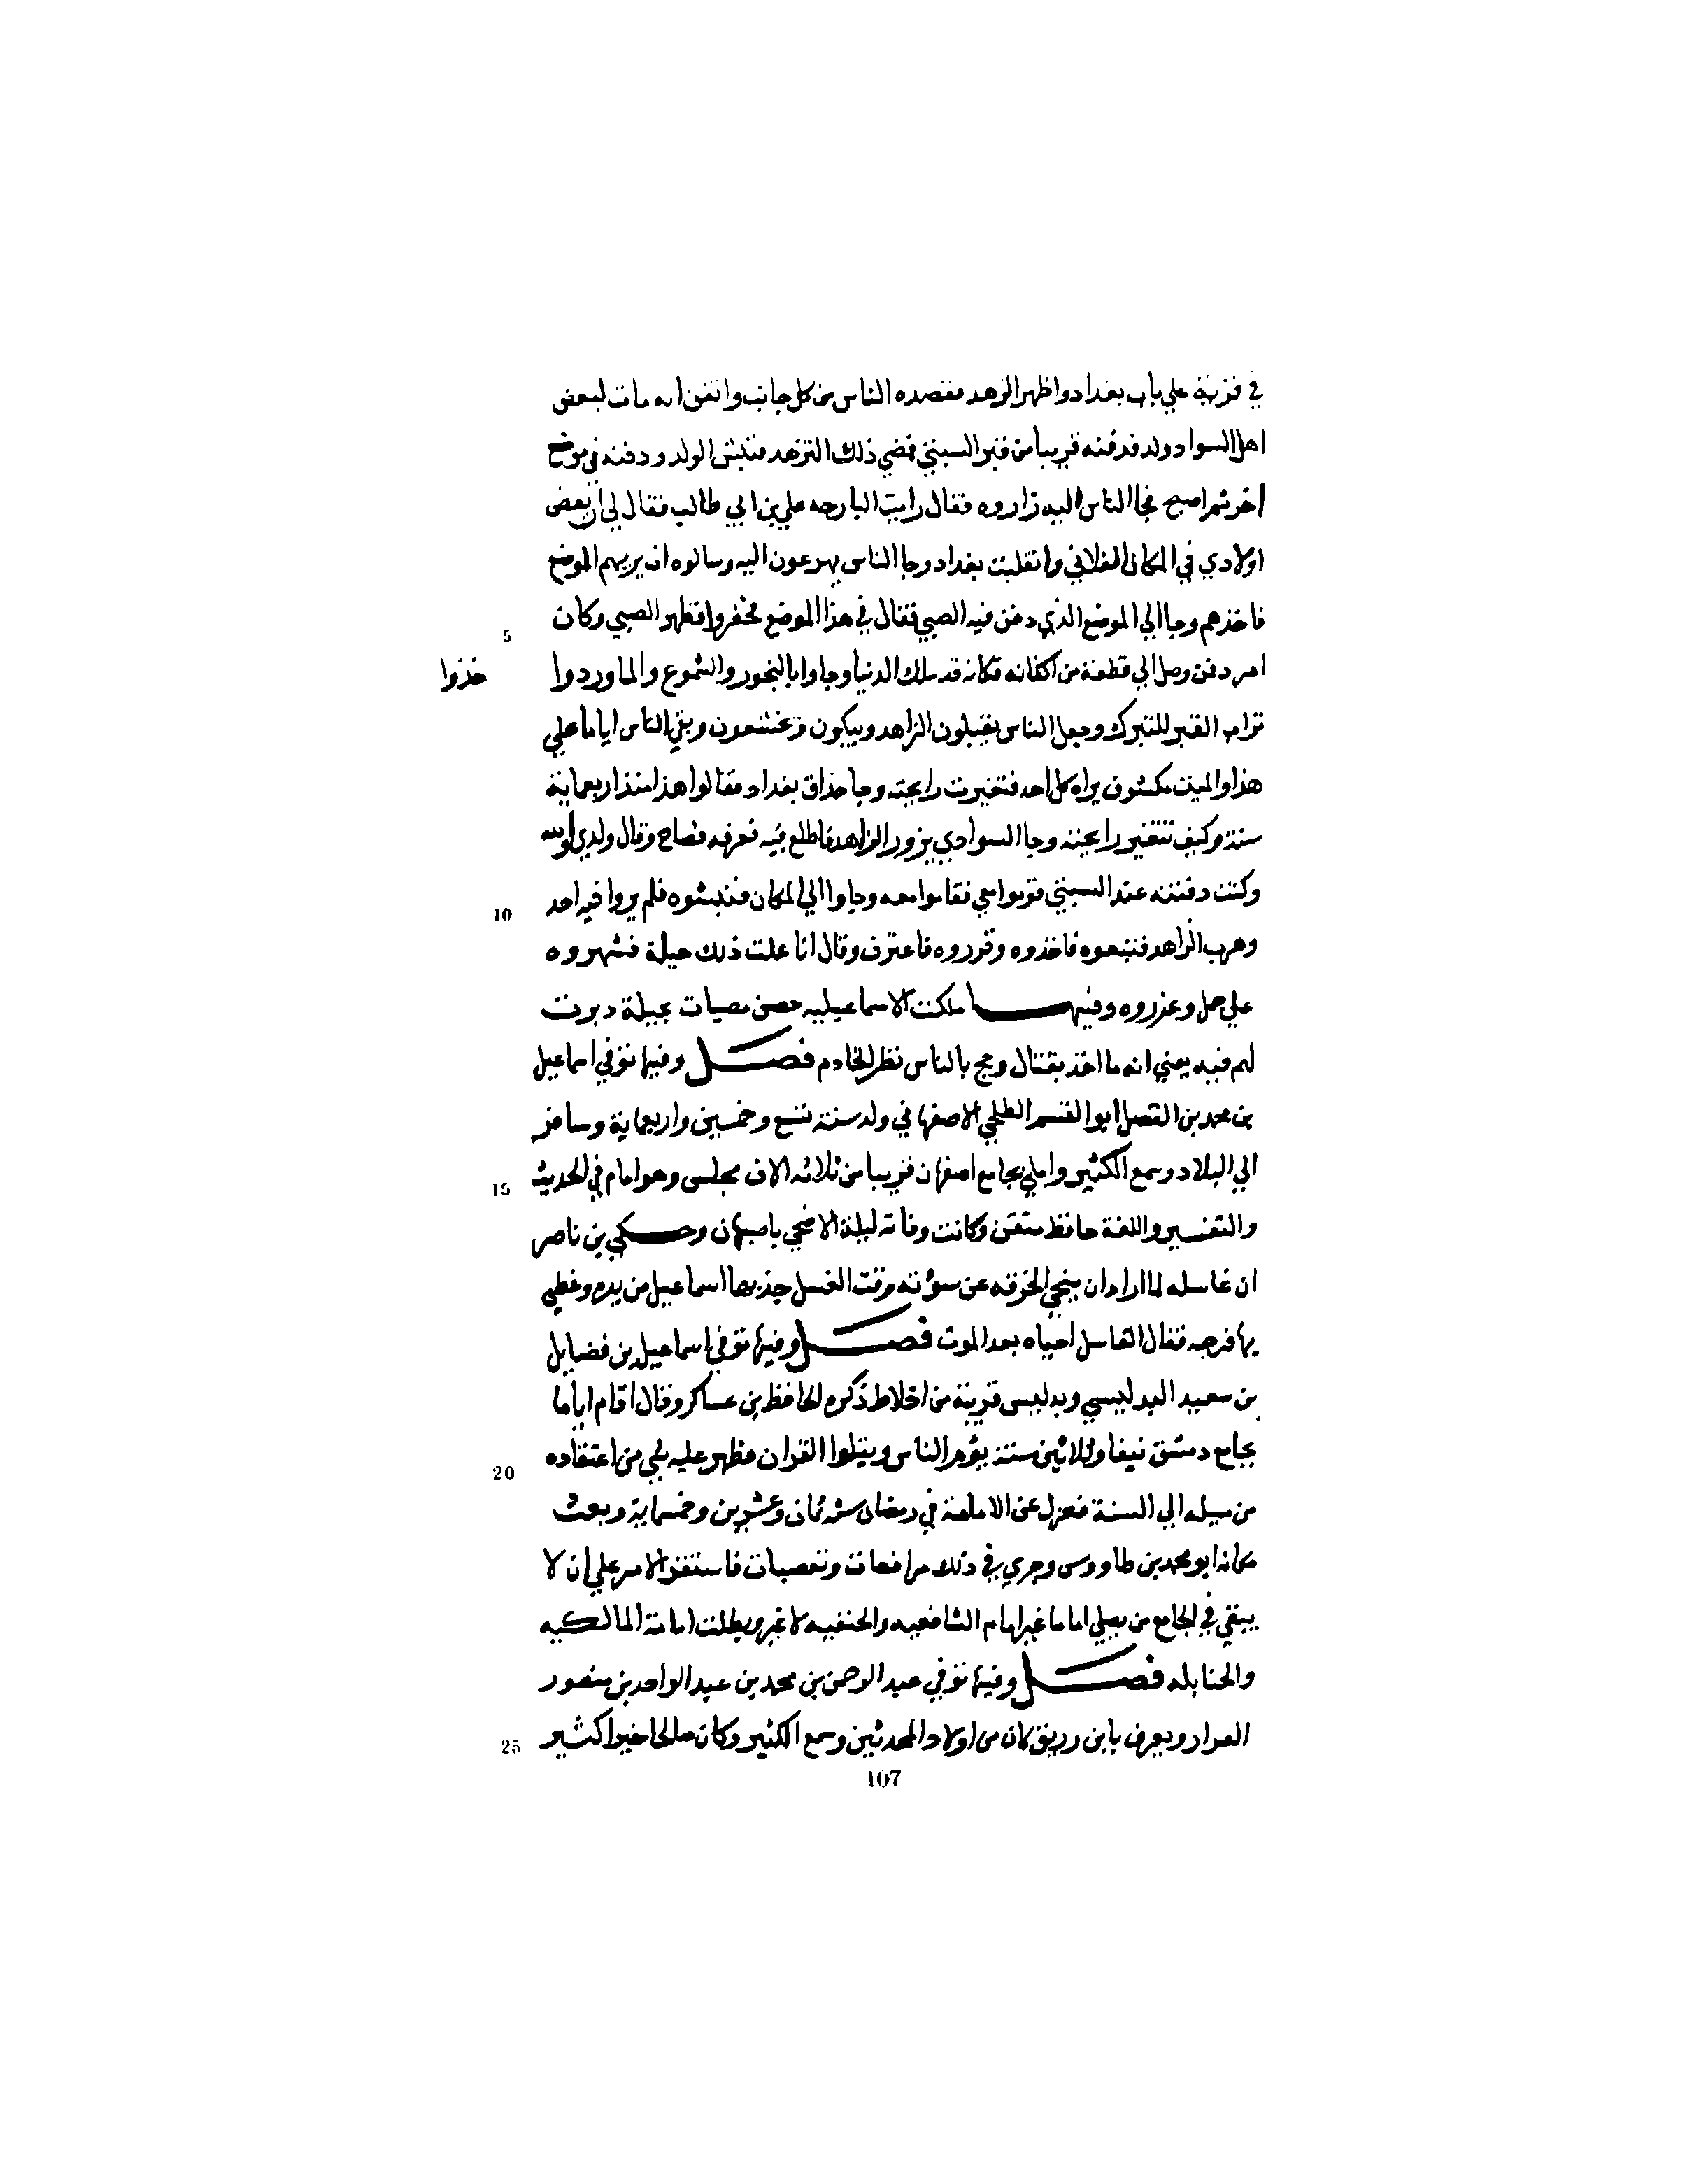 في قرية علي باب بغداد واظهر الزهد فقصده الناس من كل جانب واتفق انه مات لبعض
اهل السواد ولد فدفنه قريبا من قبر السبتي فمضي ذلك التزهد فنبش الولد ودفنه في موضع
اخر ثم اصبح فجا الناس اليه زاروه فقال رايت البارحه علي بن ابي طالب فقال لي ان بعض
اولادي في المكان الفلاني وانقلبت بغداد وجا الناس يهرعون اليه وسالوه ان يريهم الموضع
فاخذهم وجا الي الموضع الذي دفن فيه الصبي فقال في هذا الموضع فحفروا فظهر الصبي وكان 5
امرد فمن وصل الي قطعة من اكفانه فكانه قد ملك الدنيا وجاوا بالبخور والشموع والماورد وا خذوا
تراب القبر للتبرك وجعل الناس يقبلون الزاهد ويبكون ويخشعون وبقي الناس اياما علي
هذا والميت مكشوف يراه كل احد فتغيرت رايحته وجا حذاق بغداد فقالوا هذا منذ اربعماية
سنة وكيف تتغير رايحته وجا السوادي يزور الزاهد فاطلع فيه فعرفه فصاح وقال ولدي والله
وكنت دفنته عند السبتي قوموا معي فقاموا معه وجاوا الي المكان فنبشوه فلم يروا فيه احد 10
وهرب الزاهد فتبعوه فاخذوه وقرروه فاعترف وقال انا عملت ذلك حيلة فشهروه
علي جمل وعزروه وفيها ملكت الاسماعيليه حصن مصيات بحيلة دبرت
لهم فيه يعني انه ما اخذ بقتال وحج بالناس نظر الخادم فصل وفيها توفي اسماعيل
بن محمد بن الفضل ابوا القسم الطلحي الاصفهاني ولد سنة تسع وخمسين واربعماية وسافر
الي البلاد وسمع الكثير واملي بجامع اصفهان قريبا من ثلاثه الاف مجلس وهو امام في الحديث 15
والتفسير واللغة حافظ متقن وكانت وفاته ليلة الاضحي باصبهان وحكي بن ناصر
ان غاسله لما اراد ان ينحي الخرقه عن سوءته وقت الغسل جذبها اسماعيل من يده وغطي
بها فرجه فقال الغاسل احياه بعد الموت فصل وفيها توفي اسماعيل بن فضايل
بن سعيد البدليسي وبدليس قرية من اخلاط ذكره الحافظ بن عساكر وقال اقام اياما
بجامع دمشق نيفا وثلاثين سنة يؤم الناس ويتلوا القران فظهر عليه شي من اعتقاده 20
من ميله الي السنة فعزل عن الامامة في رمضان سنه ثمان وعشرين وخمسماية وبعث
مكانه ابو محمد بن طاووس وجري في ذلك مرافعات وتعصبات فاستقر الامر علي ان لا
يبقي في الجامع من يصلي اماما غير امام الشافعيه والحنفيه لا غير وبطلت امامة المالكيه
والحنابله فصل وفيها توفي عبد الرحمن بن محمد بن عبد الواحد بن منصور
ويعرف بابن رزيق كان من اولاد المحدثين وسمع الكثير وكان صالحا خيرا كثير 25
107